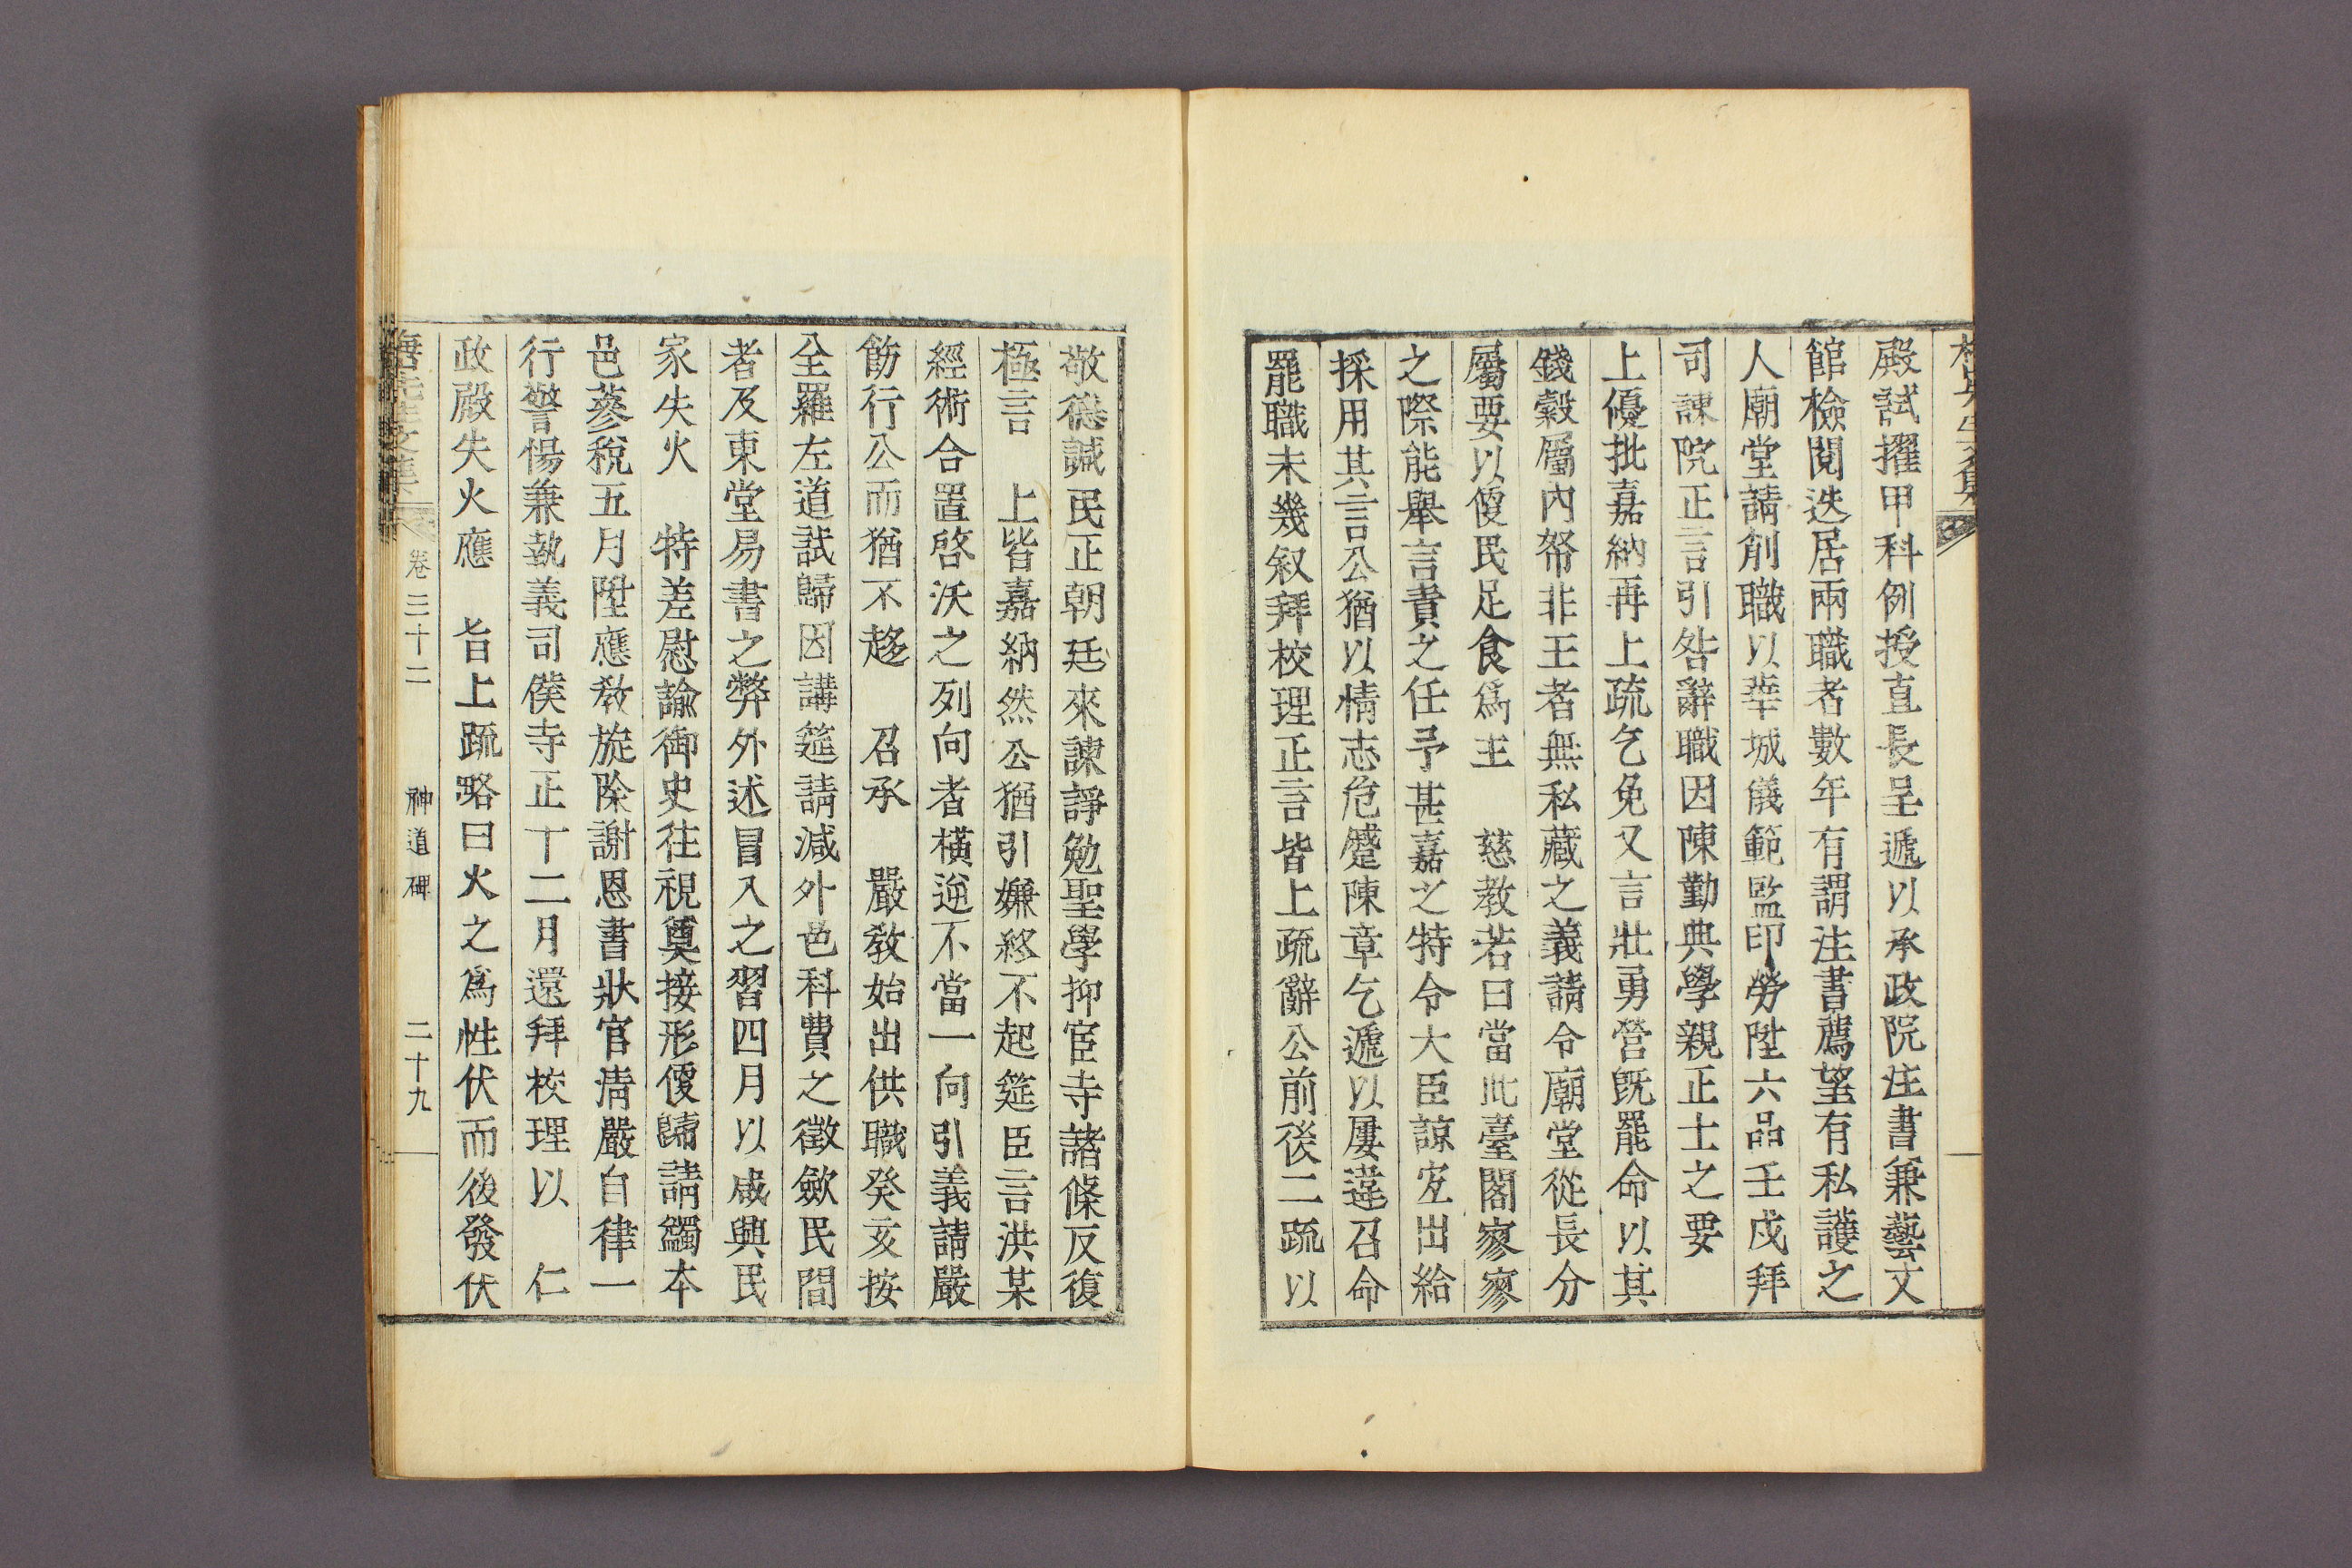 殿試擢甲科例授直長呈遞以承政院注書兼藝文
館檢閱迭居兩職者數年有謂注書薦望有私護之
人廟堂請削職以華城儀範監印勞陞六品壬戌拜
司諫院正言引咎辭職因陳勤典學親正士之要
上優批嘉納再上疏乞免又言壯勇營旣罷命以其
錢糓屬內帑非王者無私藏之義請令廟堂從長分
屬要以優民足食爲主　慈教若曰當此臺閣寥寥
之際能舉言責之任予甚嘉之特令大臣諒宐出給
採用其言公猶以情志危蹙陳章乞遞以屢違召命
罷職未幾叙拜校理正言皆上疏辭公前後二疏以
敬德諴民正朝廷來諫諍勉聖學抑宦寺諸條反復
極言　上皆嘉納然公猶引嫌終不起筵臣言洪某
經術合置啓沃之列向者橫逆不當一向引義請嚴
飭行公而猶不趍　召承　嚴敎始出供職癸亥按
全羅左道試歸因講筵請减外邑科費之徵歛民間
者及東堂易書之弊外述冒入之習四月以咸興民
家失火　特差慰諭御史往視奠接形優歸請蠲本
邑蔘稅五月陞應敎旋除謝恩書狀官淸嚴自律一
行警惕兼執義司僕寺正十二月還拜校理以　仁
政殿失火應　旨上疏略曰火之爲性伏而後發伏
卷三十二　神道碑　二十九